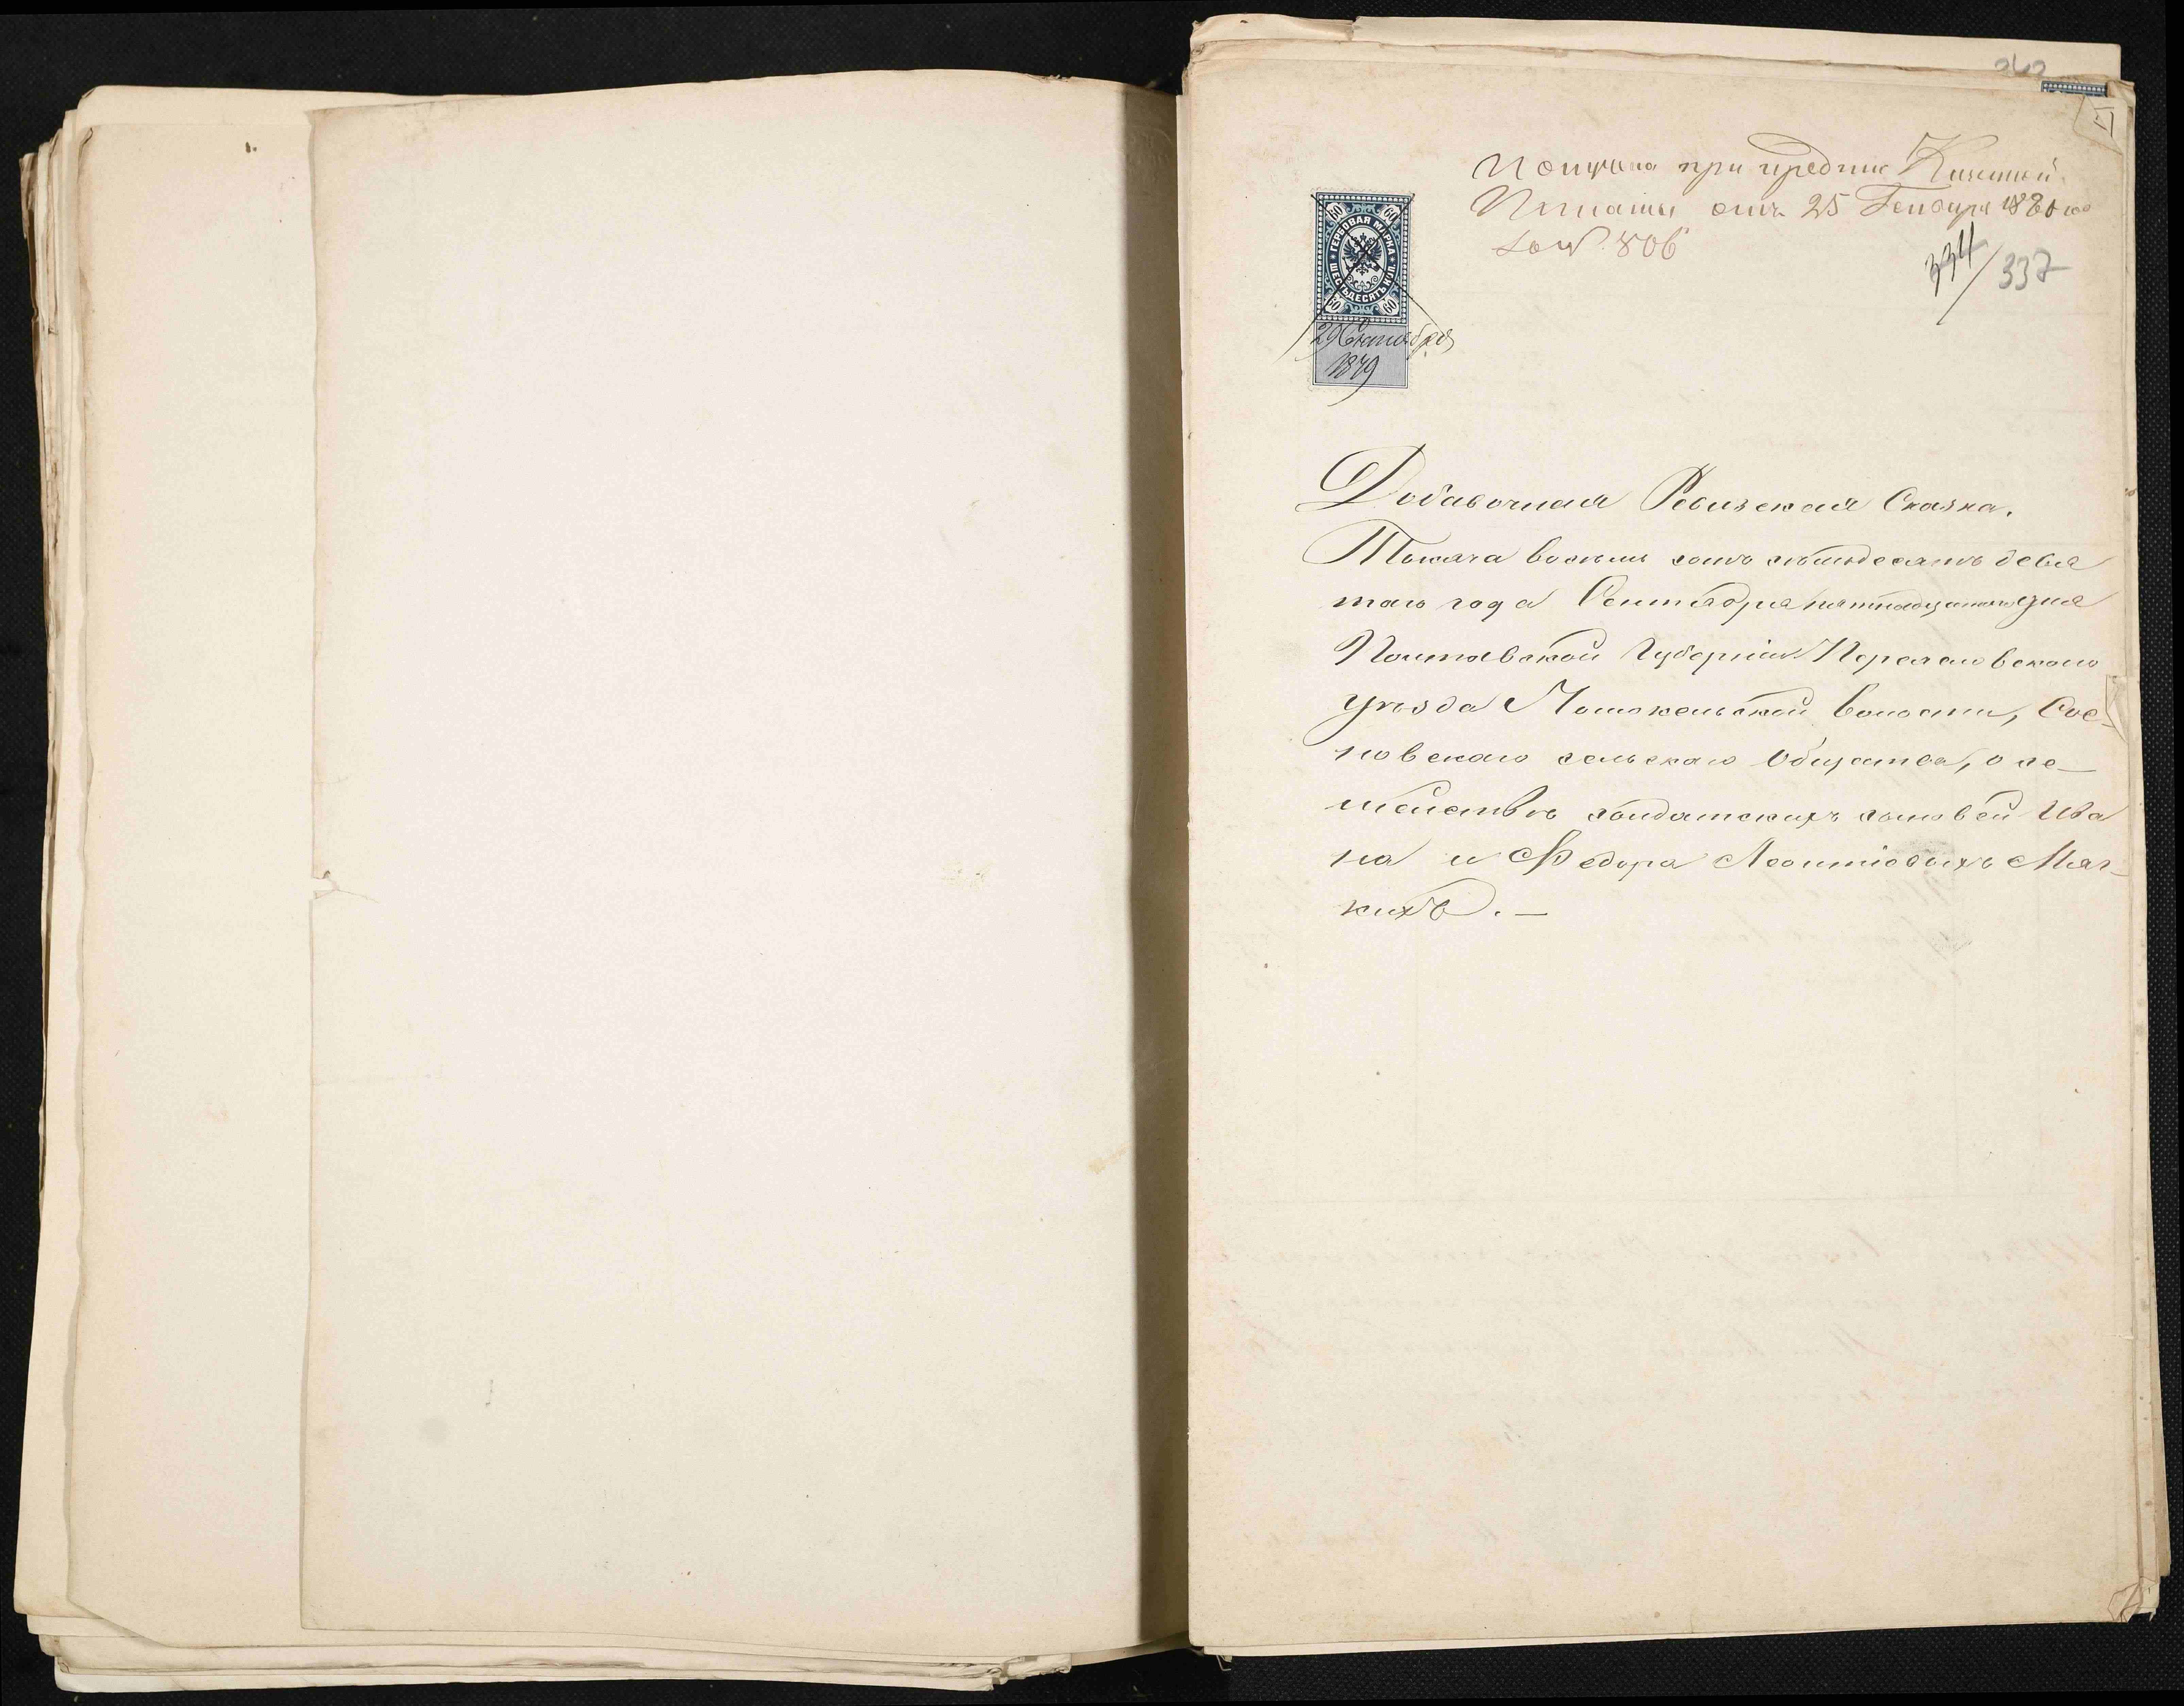 Получена при предпис. Казенной
Палаты отъ 25 Генваря 1880 го
за № 806
262
334/337
60 60
ГЕРБОВАЯ МАРКА
ШЕСТЬДЕСЯТЪ КОП.
60 60
29 Октября
1879
Добавочная Ревизская Сказка.
Тысяча восемь сотъ семьдесятъ девя
таго года Сентября пятнадцатого дня
Полтавской Губерніи Переяславского
уѣзда волости, Сос-
новскаго сельскаго Общества, о се-
мействѣ солдатскихъ сыновей Ива
на и Федора Леонтіевыхъ Мяг-
кихъ. —